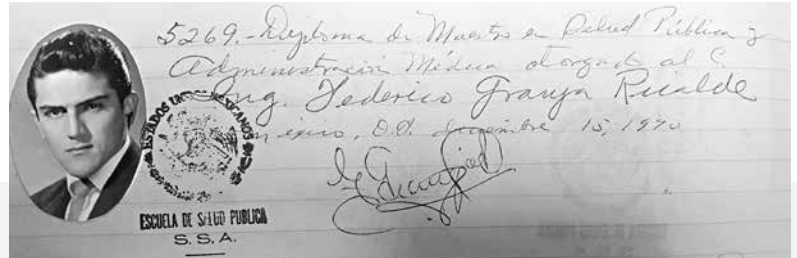 5269.-Diploma de Maestro en Salud Pública y
Administración Médica otorgado al C.
Ing. Federico Granja Ricalde
México, D.F. diciembre 15, 1970
ESTADOS UNIDOS MEXICANOS
ESCUELA DE SALUD PUBLICA
S. S. A.